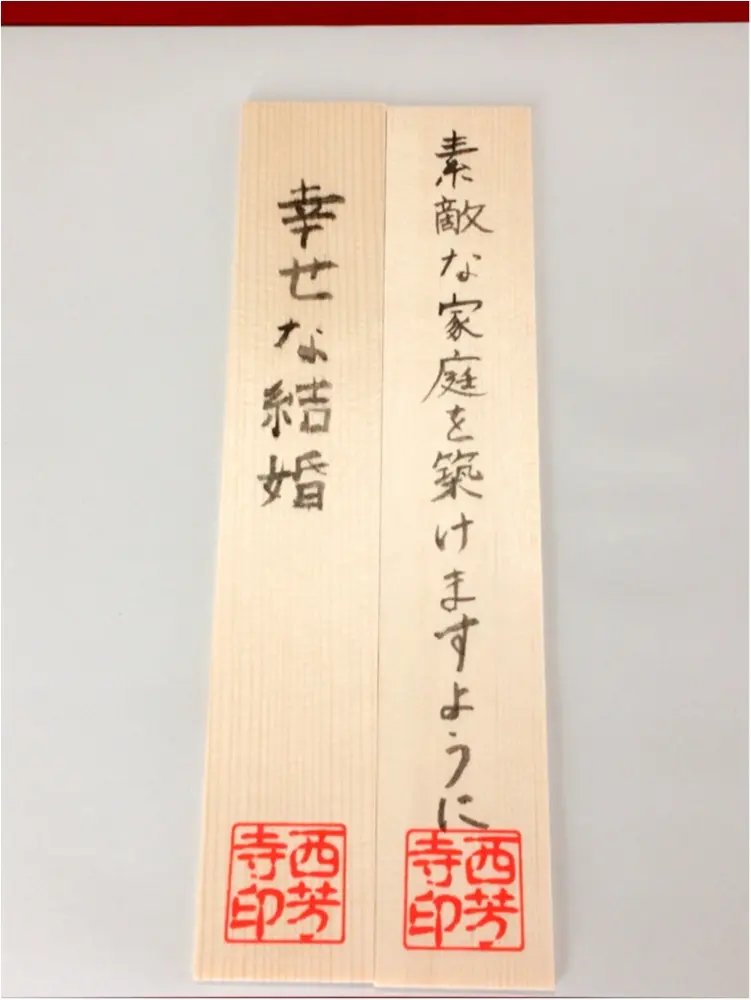 素敵な家庭を築けますように
西芳
寺印
幸せな結婚
西芳
寺印